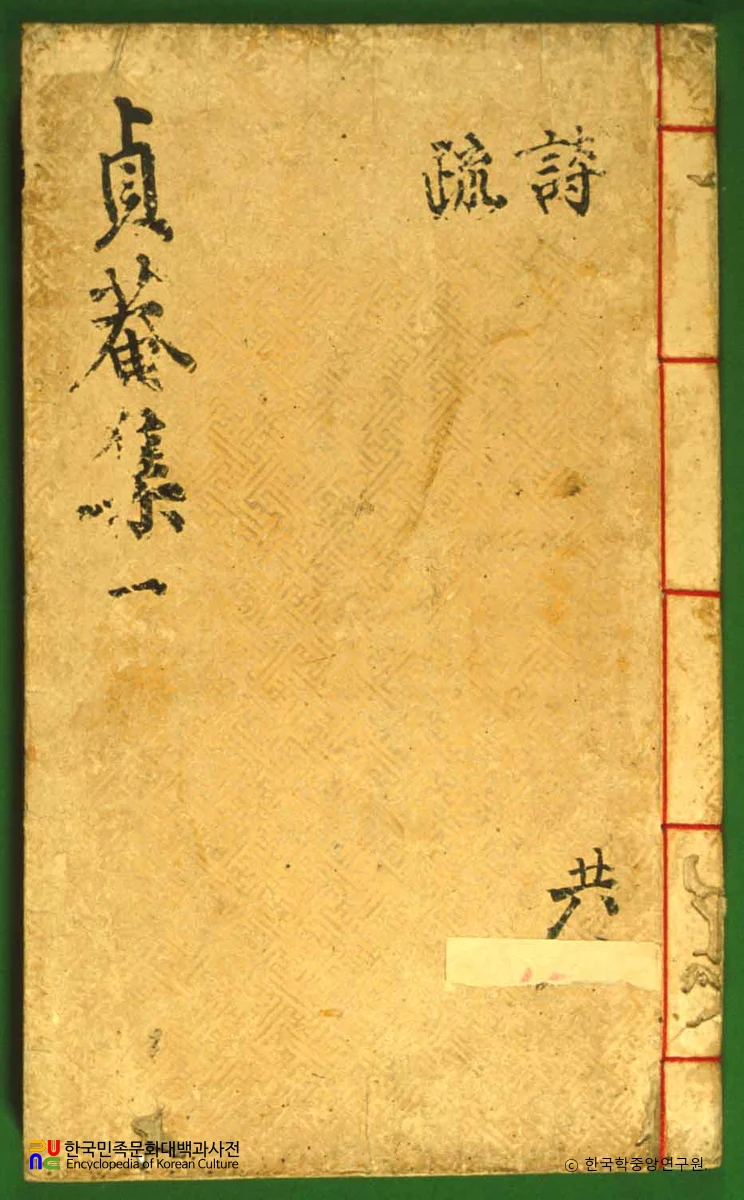 詩
疏
貞菴集 一
共
한국민족문화대백과사전
Encyclopedia of Korean Culture
© 한국학중앙연구원